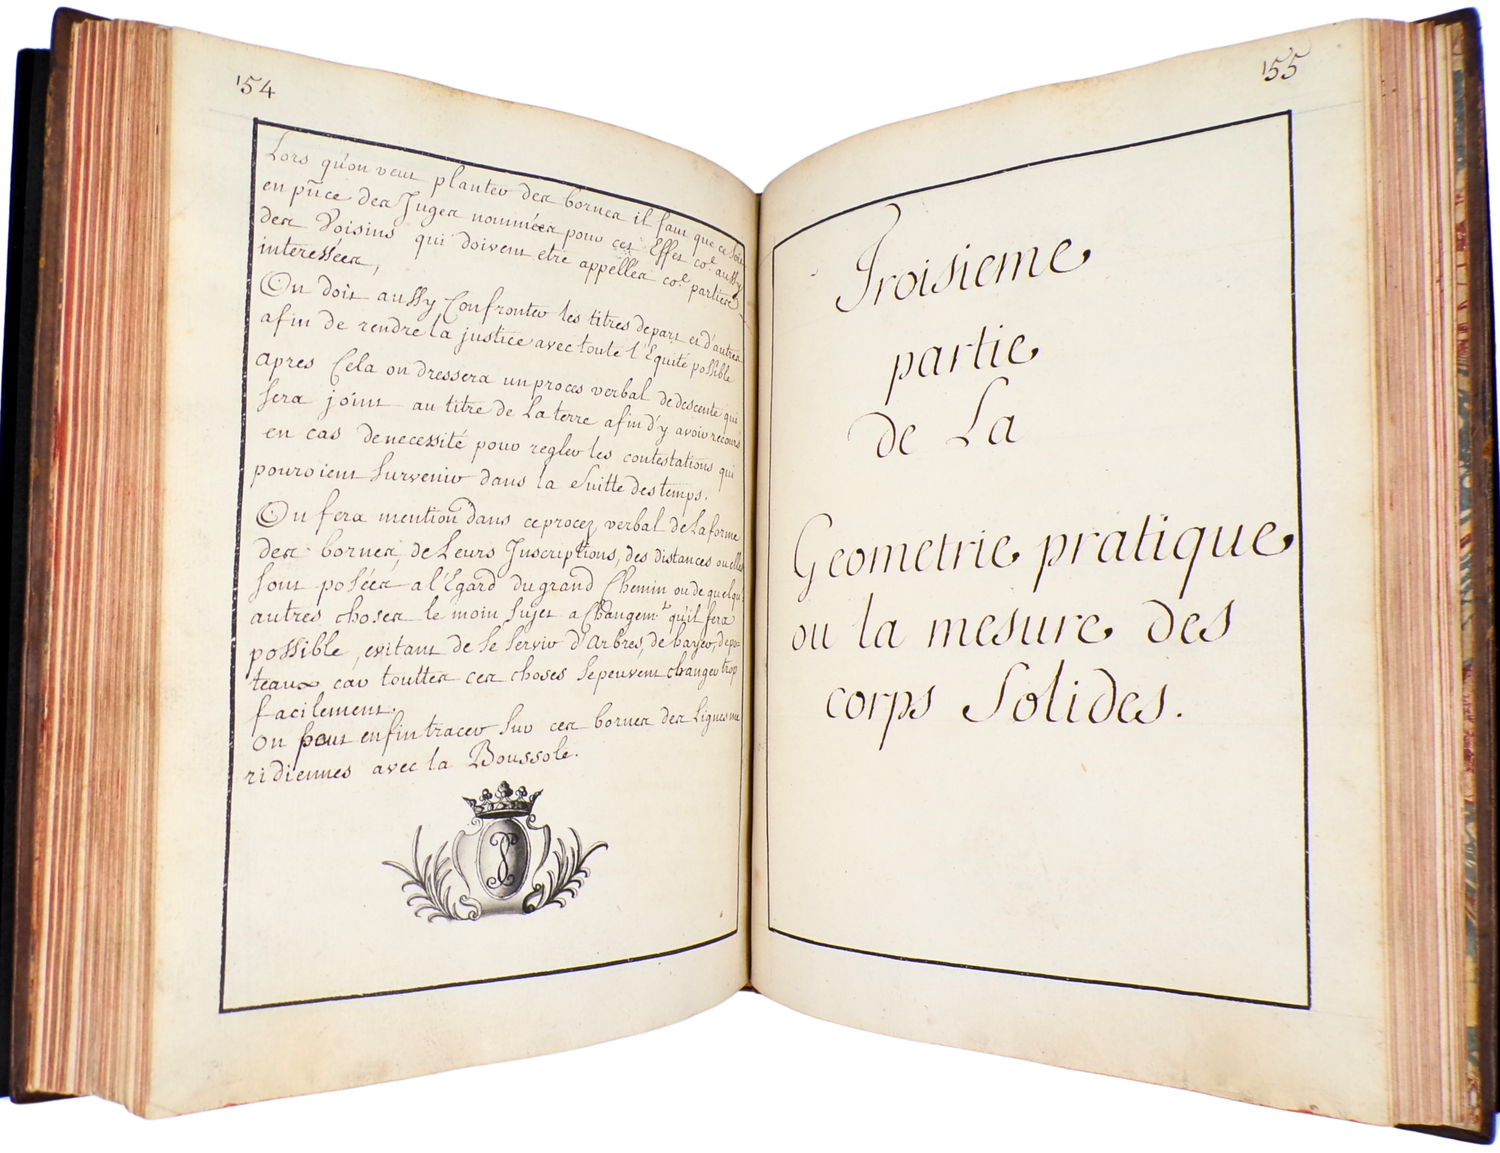 154
Lors qu'on veut planter des bornes il faut que ce soit
en pñce des Juges nommées pour cet Effet co.e aussy
des Voisins qui doivent etre appellés co.e parties
interessées,
On doit aussy Confronter les titres de part et d'autres
afin de rendre la justice avec toute l'Equité possible
apres Cela on dressera un proces verbal de descente qui
sera joint au titre de La terre afin d'y avoir recours
en cas de necessité pour regler les contestations qui
pouroient survenir dans la Suitte des temps.
On fera mention dans ce procez verbal de La forme
des bornes, de Leurs Inscriptions, des distances ou elles
sont posées a l'Egard du grand Chemin ou de quelqu'
autres choses le moin sujet a Changem.t qu'il sera
possible, evitant de se servir d'Arbres, de hayes, de po-
teaux car touttes ces choses se peuvent changer trop
facilement.
On peut enfin tracer sur ces bornes des Lignes me
ridiennes avec la Boussole.
155
Troisieme
partie
de La
Geometrie pratique
ou la mesure des
corps Solides.